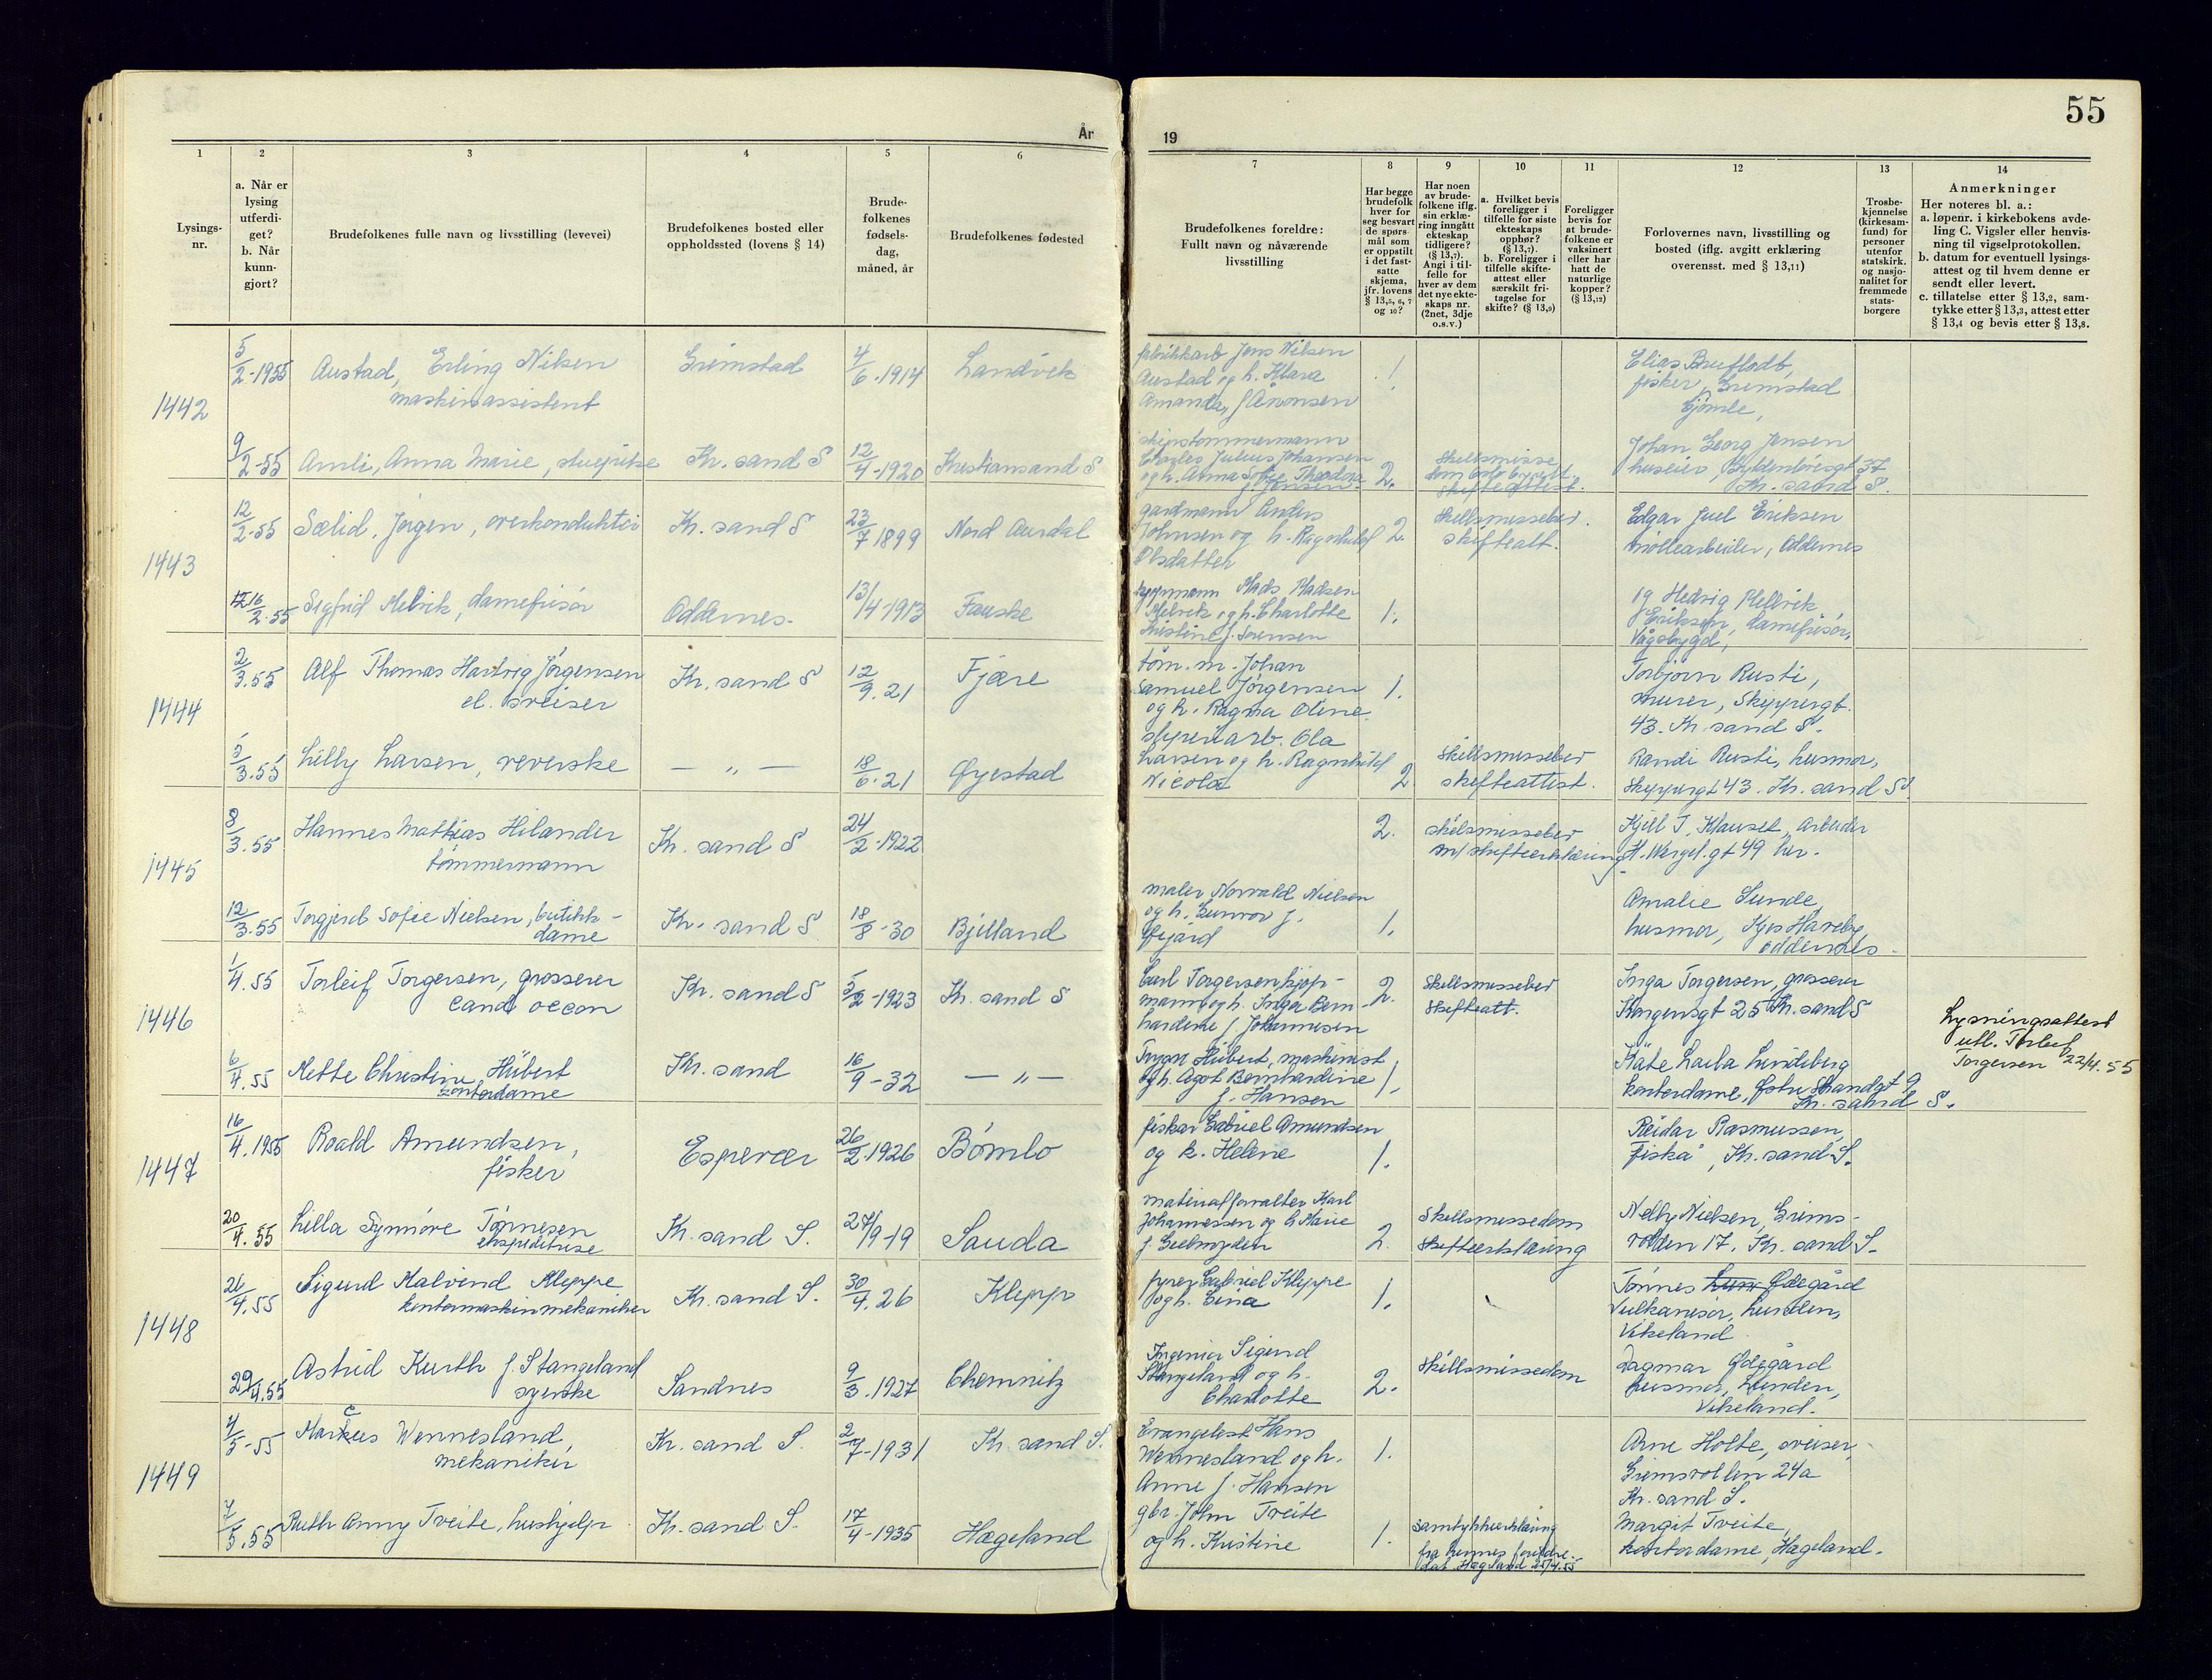 55
År
19
1
2
3
4
5
6
7
8
9
10
11
12
13
14
Lysings-
nr.
a. Når er
lysing
utferdi-
get?
b. Når
kunn-
gjort?
Brudefolkenes fulle navn og livsstilling (levevei)
Brudefolkenes bosted eller
oppholdssted (lovens § 14)
Brude-
folkenes
fødsels-
dag,
måned, år
Brudefolkenes fødested
Brudefolkenes foreldre:
Fullt navn og nåværende
livsstilling
Har begge
brudefolk
hver for
seg besvart
de spørs-
mål som
er oppstilt
i det fast-
satte
skjema,
jfr. lovens
§ 13,5, 6, 7
og 10?
Har noen
av brude-
folkene iflg.
sin erklæ-
ring inngått
ekteskap
tidligere?
(§ 13,7).
Angi i til-
felle for
hver av dem
det nye ekte-
skaps nr.
(2net, 3dje
o.s.v.)
a. Hvilket bevis
foreligger i
tilfelle for siste
ekteskaps
opphør?
(§ 13,7).
b. Foreligger i
tilfelle skifte-
attest eller
særskilt fri-
tagelse for
skifte? (§ 13,9)
Foreligger
bevis for
at brude-
folkene er
vaksinert
eller har
hatt de
naturlige
kopper?
(§ 13,12)
Forlovernes navn, livsstilling og
bosted (iflg. avgitt erklæring
overensst. med § 13,11)
Trosbe-
kjennelse
(kirkesam-
fund) for
personer
utenfor
statskirk.
og nasjo-
nalitet for
fremmede
stats-
borgere
Anmerkninger
Her noteres bl. a.:
a. løpenr. i kirkebokens avde-
ling C. Vigsler eller henvis-
ning til vigselprotokollen.
b. datum for eventuell lysings-
attest og til hvem denne er
sendt eller levert.
c. tillatelse etter § 13,2, sam-
tykke etter § 13,3, attest etter
§ 13,4 og bevis etter § 13,8.
1442
5/2-1955 Austad, Erling Nilsen
maskinassistent
Grimstad
4/6-1914
Landvik
fabrikkarb Jens Nilsen
Austad og h. Klara
Amanda, f Aanonsen
1.
fisker, Grimstad
9/2-55 Amli, Anna Marie,
Kr. sand S
12/4-1920
Kristiansand S
skipstømmermann
Charles Julius Johansen
og h. Anna Sofie Theodora
f. Jensen
2.
Skilsmisse
skifteattest.
Johan Georg Jensen
huseier, Gyldenløvesgt 37
Kr. sand S.
1443
12/2-55 Sælid, Jørgen, overkonduktør
Kr. sand S
23/7 1899
Nord Aurdal
gardmann Anders
Johnsen og h. Ragnhild
Olsdatter
2.
Skillsmissebev.
skifteatt.
Edgar Juel Eriksen
møllearbeider, Oddernes
16/2-55 Sigfrid Melvik, damefrisør
Oddernes.
13/4-1913
Fauske
Mads Madsen
Melvik og h. Charlotte
Kristine f. Sørensen
1.
og Hedvig Mellvik
f. Eriksen, damefrisør,
Vågsbygd,
1444
2/3.55 Alf Thomas Hartvig Jörgensen
el. sveiser
Kr. sand S
12/9.21
Fjære
töm. m. Johan
Samuel Jörgensen
og h. Ragna Oline
1.
Torbjörn Rusti,
murer, Skippergt.
43. Kr sand S.
5/3.55 Lilly Larsen, ververske
— „ —
18/6-21
Øyestad
slipenarb. Ola
Larsen og h. Ragnhild
Nicola
2
Skillsmissebev
skifteattest.
Randi Rusti, husmor,
Skippergt 43. Kr. sand S.
1445
8/3.55 Hannes Mathias Hilander
tömmermann
Kr. sand S
24/2-1922
2.
skilsmissebev
m/ skifteerklæring
Kjell T. Klauset, Arbeider
H. Wergel.gt 49 her.
12/3.55 Torgjerd Sofie Nielsen, butikk-
dame
Kr. sand S
18/8-30
Bjelland
maler Norvald Nielsen
og h. Gunvor f.
Øygard
1.
Amalie Sunde,
husmor,
Oddernes
1446
1/4.55 Torleif Torgersen, grosserer
Cand oecon
Kr. sand S
5/2-1923
Kr. sand S
Carl Torgersen kjøp-
mann og h. Inga Bern
hardine f. Johannesen
2.
Skillsmissebev
Skifteatt.
Inga Torgersen, grosserer
Kongensgt 25 Kr. sand S
Lysningsattest
utl. Torleif
Torgersen 22/4.55
6/4.55 Mette Christine Hübert
kontordame
Kr. sand
16/9-32
— „ —
Trygv Hübert, maskinist
og h. Agot Bernhardine
f. Hansen
1.
Käte Laila Lindeberg
kontordame, Østre Strandgt 9
Kr. sand S.
1447
16/4.1955 Roald Amundsen,
fisker
Espevær
26/2.1926
Bömlo
fisker Gabriel Amundsen
og h. Helene
1.
Reidar Rasmussen,
Fiskå, Kr. sand S.
20/4.55 Lilla Synnöve Tönnesen
ekspeditrise
Kr. sand S.
27/9-19
Sauda
materialforvalter Karl
Johannessen og h Marie
f. Geelmyden
2.
Skillsmissedom
skifteerklæring
Nelly Nielsen, Grims-
vollen 17. Kr. sand S.
1448
26/4.55 Sigurd Malvind Kleppe
kontormaskinmekaniker
Kr. sand S.
30/4.26
Klepp
fyrer Gabriel Kleppe
og h. Gina
1.
Tönnes Ødegård
vulkanisör, Lunden,
Vikeland
29/4.55 Astrid Kurth f. Stangeland
syerske
Sandnes
9/3.1927
Chemnitz
Ingeniör Sigurd
Stangeland og h.
Charlotte
2.
Skillsmissedom
Dagmar Ødegård
husmor, Lunden,
Vikeland.
1449
4/5-55 Markus Wennesland,
mekaniker
Kr. sand S.
2/7-1931
Kr. sand S.
Evangelist Hans
Wennesland og h.
Anne f. Hansen
1.
Arne Holte, sveiser,
Grimsvollen 24a
Kr. sand S.
7/5.55 Ruth Anny Tveite, hushjelp
Kr. sand S.
17/4-1935
Hægeland
gbr. John Tveite
og h. Kristine
1.
Samtykkeerklæring
fra hennes foreldre.
dat. Hægeland
Margit Tveite,
kontordame, Hægeland.